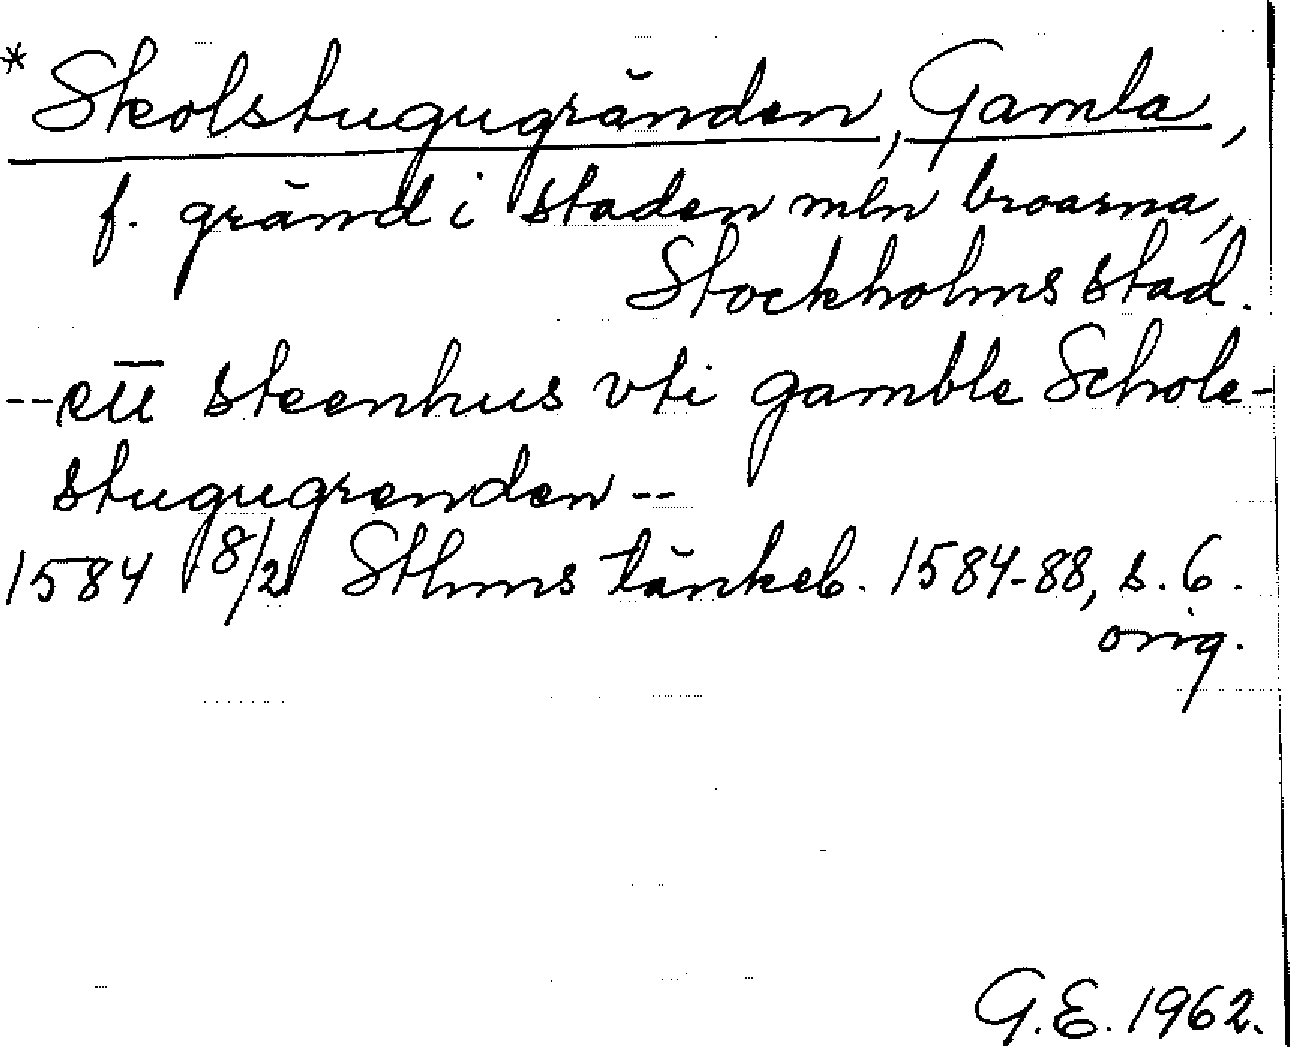 * Skolstugugränden, Gamla,
f. gränd i staden mln broarna,
Stockholms stad.
-- ett steenhus vti gamble Schole-
stugugrenden --
1584 8/2 Sthms tänkeb. 1584-88, s. 6.
orig.
G.E. 1962.